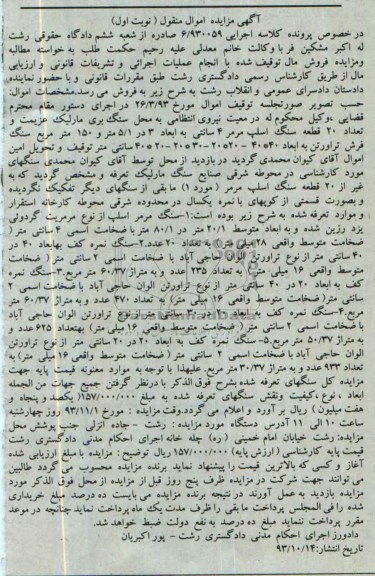 آگهی مزایده اموال منقول ( نوبت اول)
در خصوص پرونده کلاسه اجرایی ۶/۹۳۰۰۵۹ صادره از شعبه ششم دادگاه حقوقی رشت
له اکبر مشکین فر با وکالت خانم معدلی علیه رحیم حکمت طلب به خواسته مطالبه
ومزایده فروش مال توقیف شده با انجام عملیات اجرائی و تشریفات قانونی و ارزیابی
مال از طریق کارشناس رسمی دادگستری رشت طبق مقررات قانونی و با حضور نماینده
دادستان دادسرای عمومی و انقلاب رشت به شرح زیر به فروش می رسد.مشخصات اموال:
حسب تصویر صورتجلسه توقیف اموال مورخ ۲۶/۳/۹۳ در اجرای دستور مقام محترم
قضایی ،وکیل محکوم له در معیت نیروی انتظامی به محل سنگ بری مارلیک عزیمت و
تعداد ۲۰ قطعه سنگ اسلپ مرمر ۴ سانتی به ابعاد ۳ در ۵/۱ متر و ۱۵۰ متر مربع سنگ
فرش تراورتن به ابعاد ۴۰*۴۰ - ۲۰*۲۰ -۳۰*۲۰ - ۲۰*۴۰ سانتی متر توقیف و تحویل امین
اموال آقای کیوان محمدی گردید در بازدید از محل توسط آقای کیوان محمدی سنگهای
مورد کارشناسی در محوطه شرقی صنایع سنگ مارلیک تعرفه و مشخص گردید که به
غیر از ۲۰ قطعه سنگ اسلپ مرمر ( مورد ۱) ما بقی از سنگهای دیگر تفکیک نگردیده
و بصورت قسمتی از کوپهای با نمره یکسال در محدوده شرقی محوطه کارخانه استقرار
و موارد تعرفه شده به شرح زیر بوده است:۱-سنگ مرمر اسلپ از نوع مرمریت گردوئی
یزد رزین شده و به ابعاد متوسط ۲۰/۱ متر در ۸۰/۱ متر با ضخامت اسمی ۴ سانتی متر (
ضخامت متوسط واقعی ۲۸ میلی متر)، به تعداد ۲۰ عدد.۲-سنگ نمره کف بهابعاد ۴۰ در
۴۰ سانتی متر از نوع تراورتن الوان حاجی آباد با ضخامت اسمی ۲ سانتی متر ( ضخامت
متوسط واقعی ۱۶ میلی متر) به تعداد ۲۳۵ عدد و به متراژ ۶۰/۳۷ متر مربع.۳-سنگ نمره
کف به ابعاد ۲۰ در ۴۰ سانتی متر از نوع تراورتن الوان حاجی آباد با ضخامت اسمی ۲
سانتی متر( ضخامت متوسط واقعی ۱۶ میلی متر) به تعداد ۴۷۰ عدد و به متراژ ۶۰/۳۷ متر
مربع.۴-سنگ نمره کف به ابعاد ۲۰ در ۳۰ سانتی متر از نوع تراورتن الوان حاجی آباد
با ضخامت اسمی ۲ سانتی متر ( ضخامت متوسط واقعی ۱۶ میلی متر) بهتعداد ۶۲۵ عدد و
به متراژ ۵۰/۳۷ متر مربع.۵-سنگ نمره کف به ابعاد ۲۰ در ۲۰ سانتی متر از نوع تراورتن
الوان حاجی آباد با ضخامت اسمی ۲ سانتی متر ( ضخامت متوسط واقعی ۱۶ میلی متر) به
تعداد ۹۳۳ عدد و به متراژ ۳۰/۳۷ متر مربع.علیهذا با توجه به موارد معنونه قیمت پایه جهت
مزایده کل سنگهای تعرفه شده بشرح فوق الذکر با درنظر گرفتن جمیع جهات من الجمله
ابعاد ، نوع ،کیفیت ونقش سنگهای تعرفه شده به مبلغ ۱۵۷/۰۰۰/۰۰۰(یکصد و پنجاه و
هفت میلیون ) ریال بر آورد و اعلام می گردد.وقت مزایده : مورخ ۹۳/۱۱/۱ روز چهارشنبه
ساعت ۱۰ الی ۱۱ آدرس دستگاه مورد مزایده : رشت - جاده انزلی جنب پوشش محل
مزایده: رشت خیابان امام خمینی ( ره) چله خانه اجرای احکام مدنی دادگستری رشت
قیمت پایه کارشناسی ( ارزش پایه) ۱۵۷/۰۰۰/۰۰۰ ریال توضیح : مزایده با مبلغ ارزیابی شده
آغاز و کسی که بالاترین قیمت را پیشنهاد نماید برنده مزایده محسوب می گردد طالبین
می توانند جهت شرکت در مزایده ظرف پنج روز قبل از مزایده از محل فوق الذکر مورد
مزایده بازدید به عمل آورند در نتیجه برنده مزایده می بایست ده درصد مبلغ خریداری
شده را فی المجلس پرداخت ما بقی را ظرف مدت یک ماه پرداخت نماید چنانچه در موعد
مقرر پرداخت ننماید مبلغ ده درصد به نفع دولت ضبط خواهد شد.
دادورز اجرای احکام مدنی دادگستری رشت - پور اکبریان
تاریخ انتشار:۹۳/۱۰/۱۴